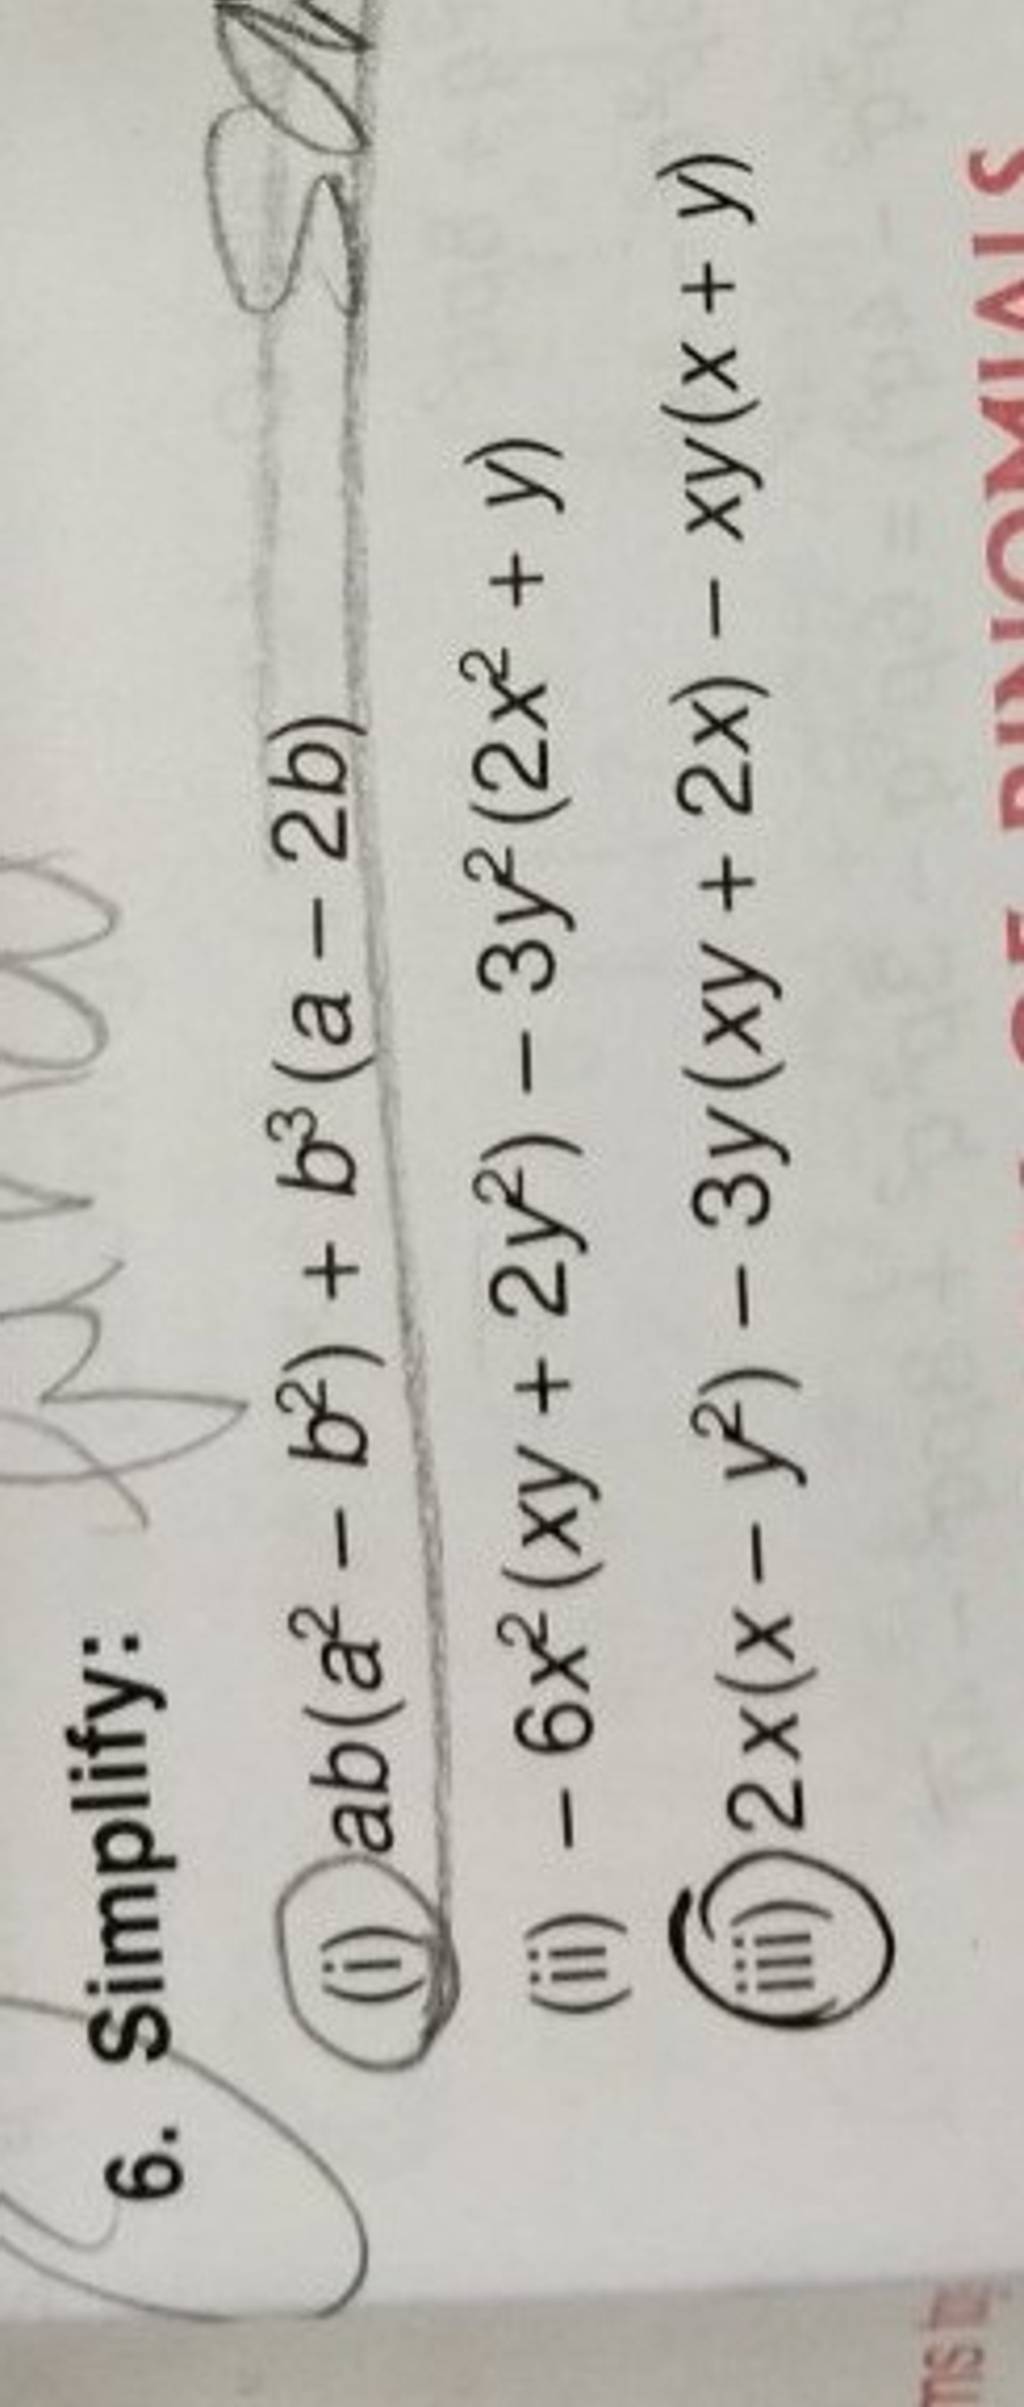 6. Simplify:
(i) ab(a² – b²) + b³(a – 2b)
(ii) – 6x²(xy + 2y²) – 3y²(2x² + y)
(iii) 2x(x – y²) – 3y(xy + 2x) – xy(x + y)